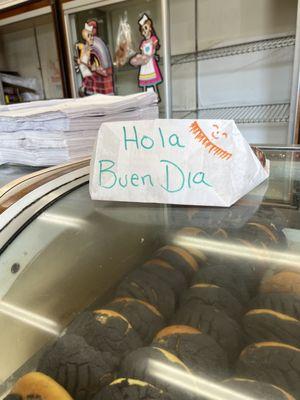 Hola
Buen Dia